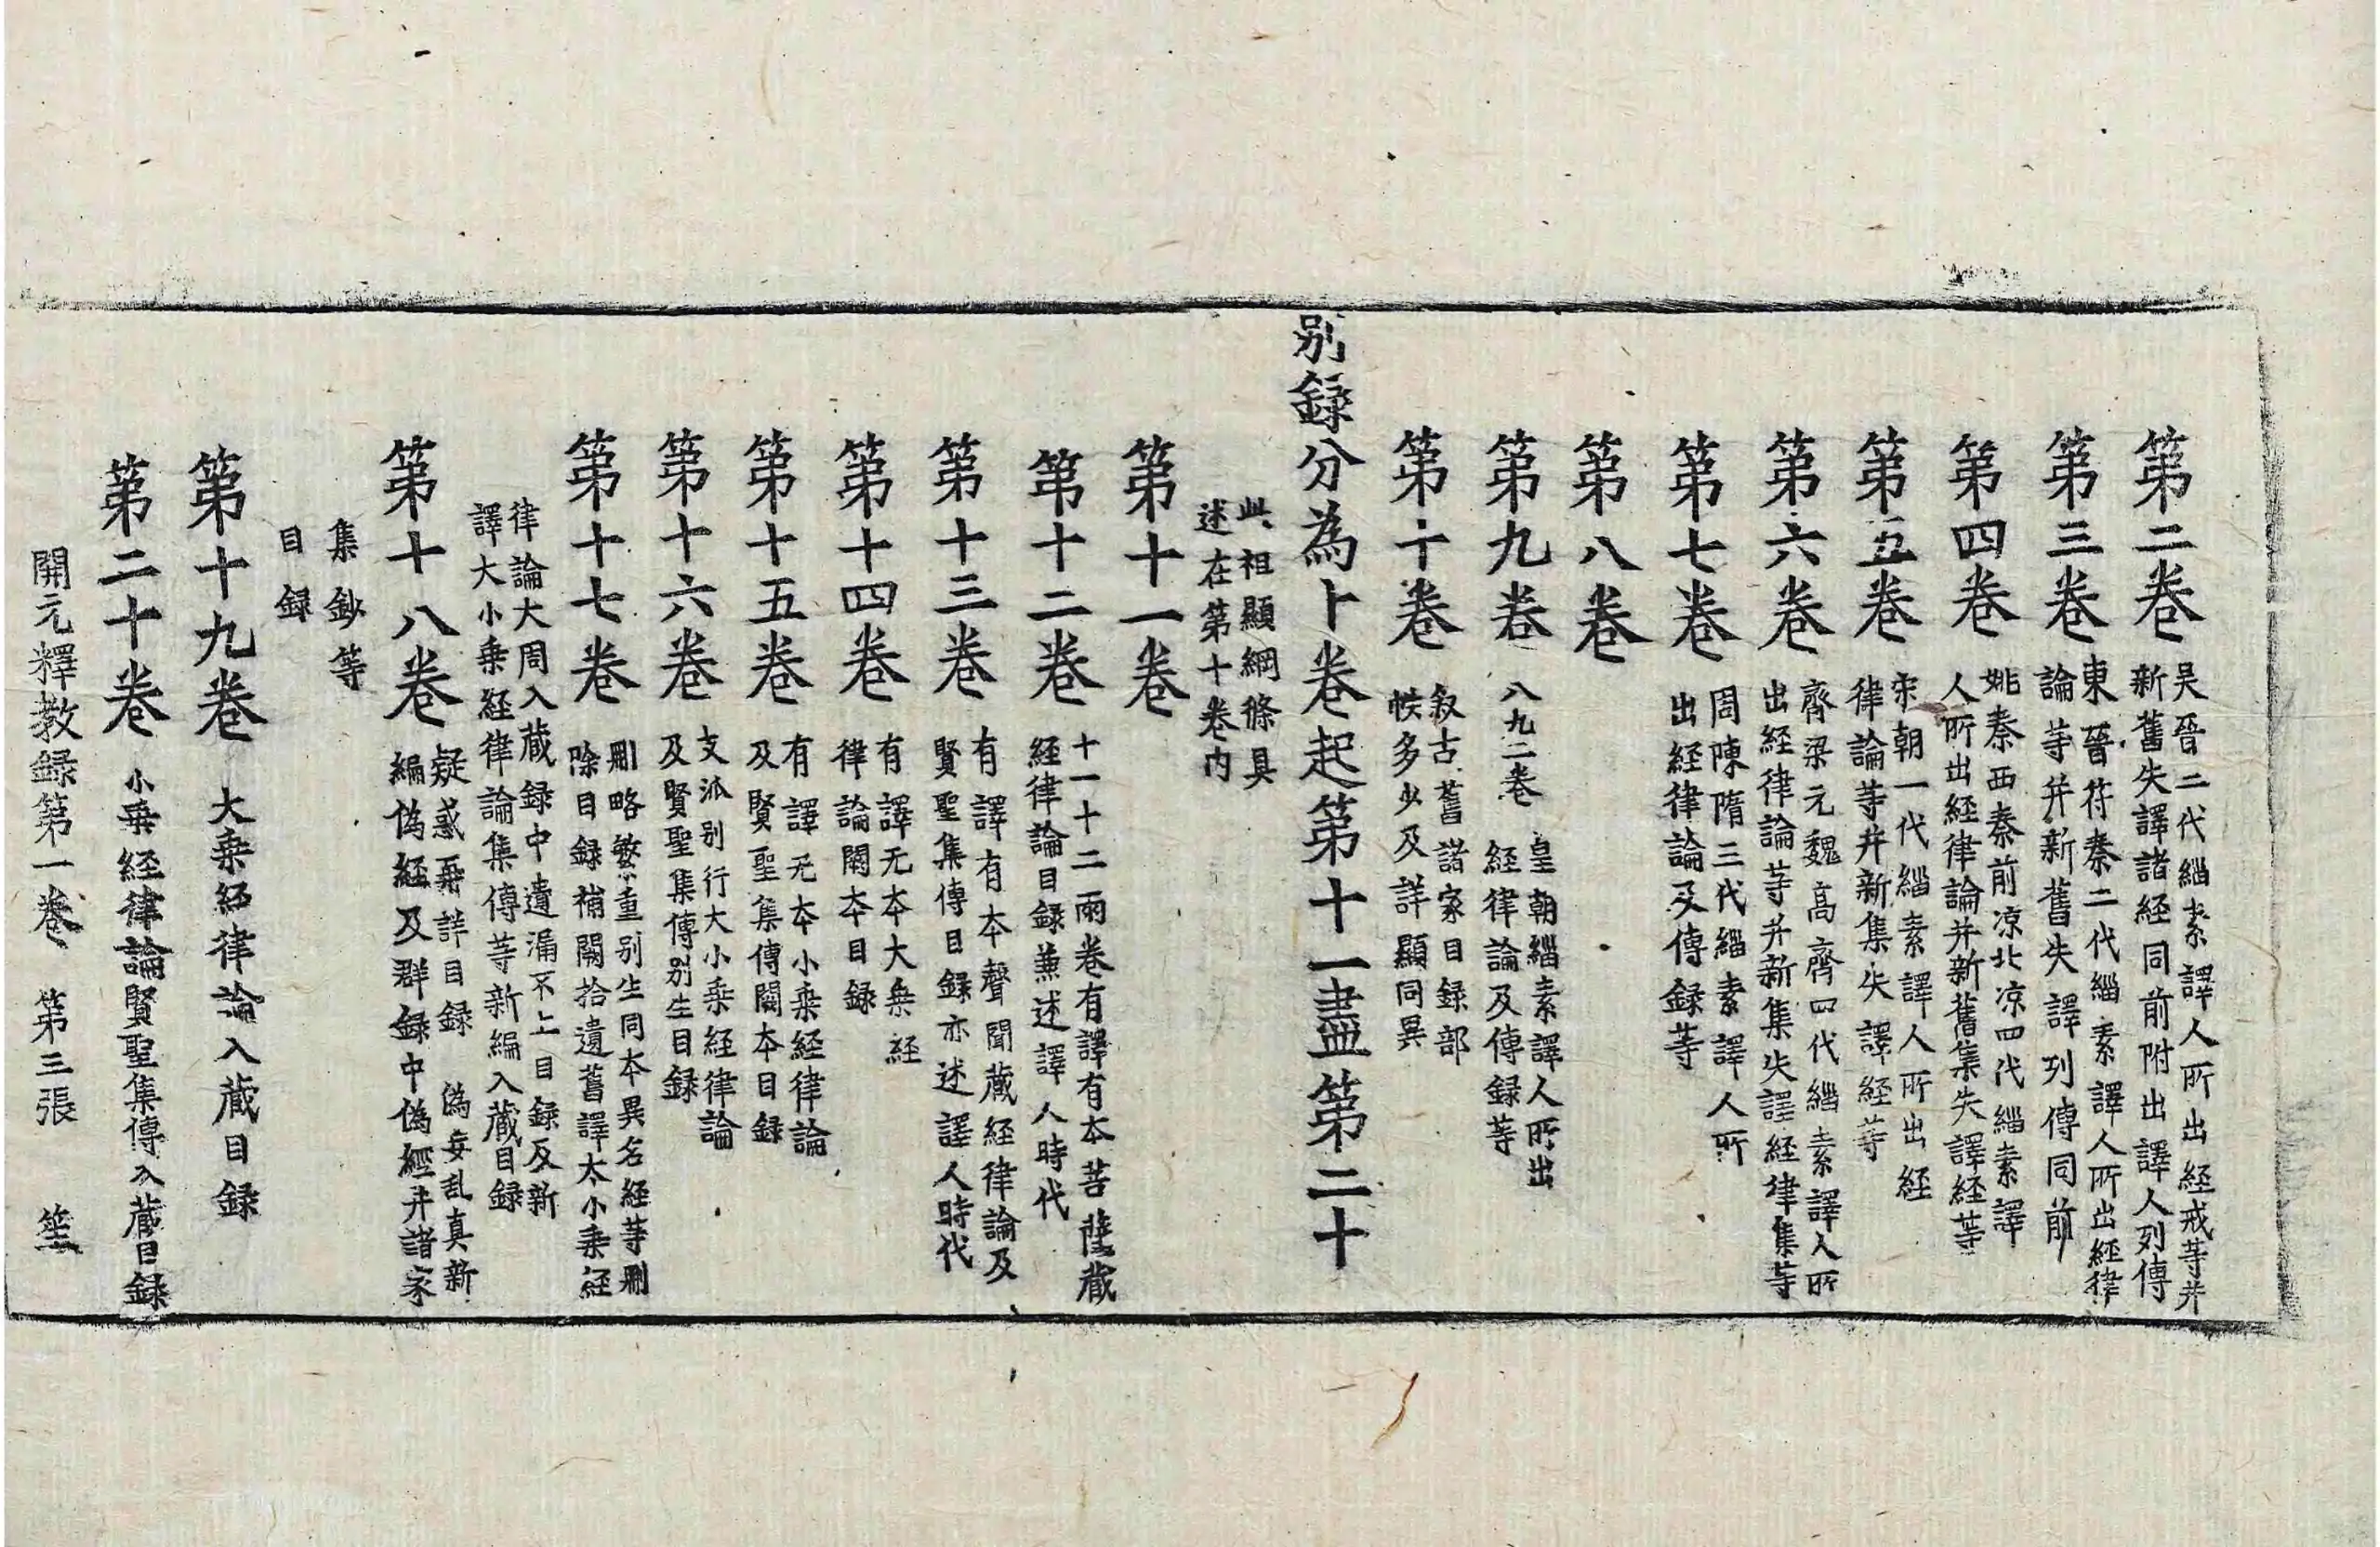 第二卷 吴晉二代緇素譯人所出経戒䓁并
新舊失譯諸経同前附出譯人列傳
第三卷 東晉苻秦二代緇素譯人所出経律
論䓁并新舊失譯列傳同前
第四卷 姚秦西秦前凉北凉四代緇素譯
人所出経律論并新舊集失譯経䓁
第五卷 宋朝一代緇素譯人所出経
律論䓁并新集失譯経䓁
第六卷 齊梁元魏高齊四代緇素譯人所
出経律論䓁并新集失譯経律集䓁
第七卷 周陳隋三代緇素譯人所
出経律論及傳録䓁
第八卷
第九卷 八九二卷 皇朝緇素譯人所出
経律論及傳録䓁
第十卷 叙古舊諸家目録部
帙多少及詳顯同異
别録分為卜卷起第十一盡第二十
此祖顯綱條具
述在第十卷内
第十一卷
第十二卷 十一十二兩卷有譯有本菩薩藏
経律論目録兼述譯人時代
第十三卷 有譯有本聲聞藏経律論及
賢聖集傳目録亦述譯人時代
第十四卷 有譯无本大乗経
律論闕本目録
第十五卷 有譯无本小乗経律論
及賢聖集傳闕本目録
第十六卷 支派别行大小乗経律論
及賢聖集傳别生目録
第十七卷 刪略繁重别生同本異名経䓁刪
除目録補闕拾遺舊譯大小乗経
律論大周入藏録中遺漏不上目録及新
譯大小乗経律論集傳䓁新編入藏目録
第十八卷 疑惑再詳目録 偽妄乱真新
編偽経及群録中偽経并諸家
集鈔等
目録
第十九卷 大乗経律論入藏目録
第二十卷 小乗経律論賢聖集傳入藏目録
開元釋教録第一卷 第三張 笙